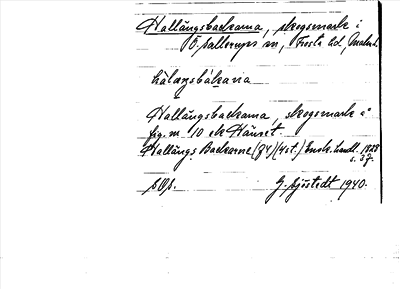 Hallängsbackarna, skogsmark i
Ö. Sallerups sn, Frosta hd, Malm. l.
hálæŋsbákana
Hallängsbackarna, skogsmark i
fig. m. 10 ek Hänset.
Hallängs Backarne (Z4) (4st.) Ensk. handl. 1828
s. 37.
G. Sjöstedt 1940.